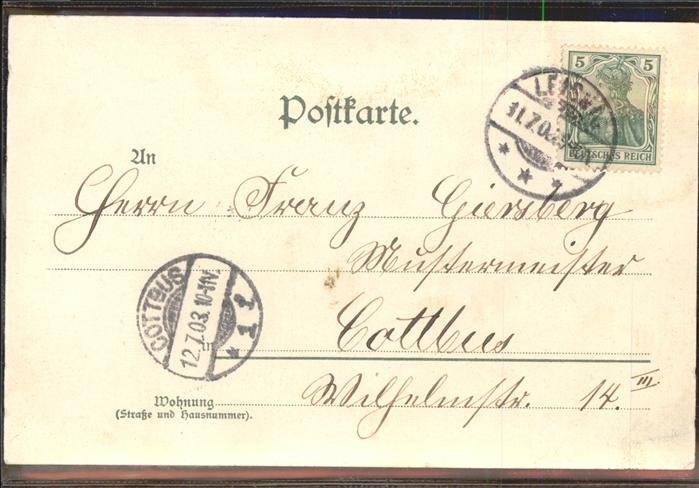 5 5
DEUTSCHES REICH
11.7.03
Postkarte.
An
Herrn Franz Giersberg
Mustermeister
COTTBUS
12.7.03. 10-11V.
* 1 f
in
Cottbus
Wohnung
(Straße und Hausnummer).
Wilhelmstr. 14. III